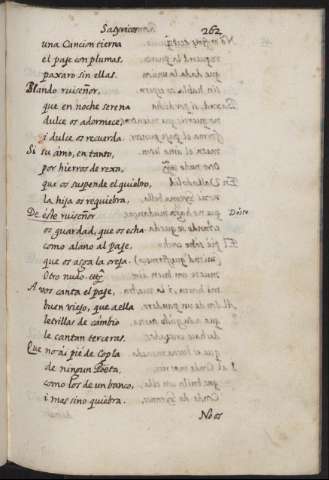 Satyricos 262
una Cancion tierna
el paje con plumas,
paxaro sin ellas.
Blando ruiseñor,
que en noche serena
dulce os adormece,
i dulce os recuerda.
Si su amo, en tanto,
por hierros de rexa,
que os suspende el quiebro,
la hija os requiebra,
De este ruiseñor
os guardad, que os echa
como alano al paje,
que os asga la oreja.
Otro nudo,
A vos canta el paje,
buen viejo, que a ella
letrillas de cambio
le cantan terceras.
Que no ai pie de copla
de ningun Poeta,
como los de un banco,
i mas sino quiebra.
No os